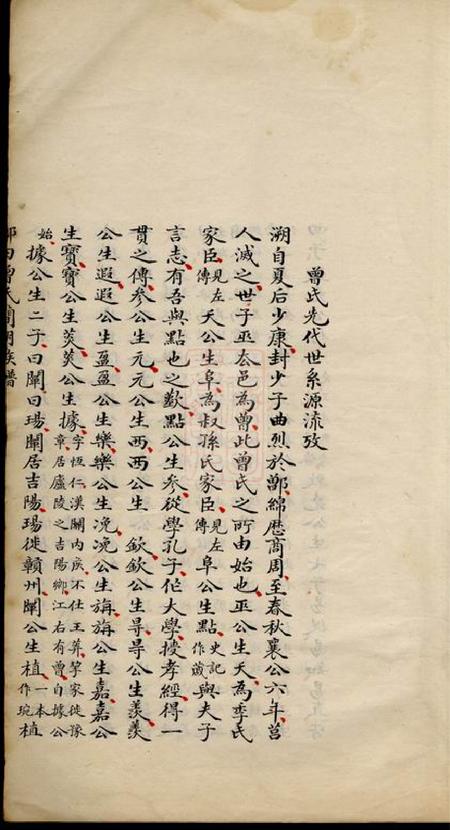 曾氏先代世系源流攷
溯自夏后少康封少子曲烈於鄫綿歷商周至春秋襄公六年莒
人滅之世子巫去邑為曾此曾氏之所由始也巫公生夭為季氏
家臣見左傳夭公生阜為叔孫氏家臣見左傳阜公生點史記作蒧與夫子
言志有吾與點也之歎點公生參從學孔子作大學授孝經得一
貫之傳參公生元元公生西西公生 欽欽公生㝷㝷公生羨羨
公生遐遐公生盈盈公生樂樂公生浼浼公生旃旃公生嘉嘉公
生寶寶公生炎炎公生據字恆仁漢關內侯不仕王莽挈家徙豫章居廬陵之吉陽鄉江右有曾自據公
始據公生二子曰闡曰瑒闡居吉陽瑒徙贛州闡公生植一本作琬植